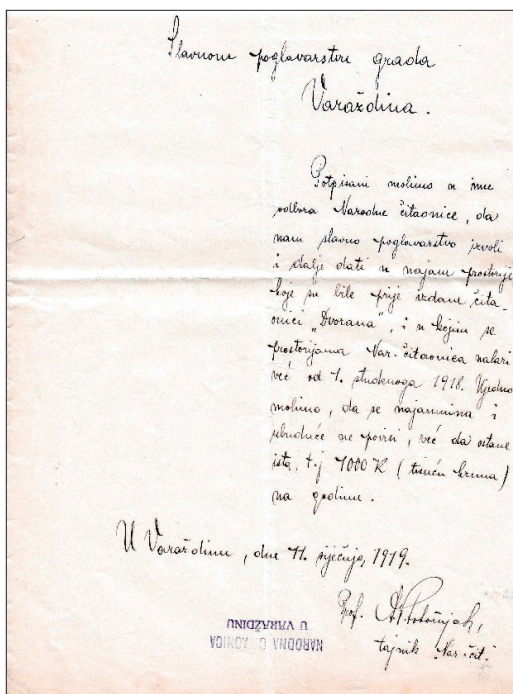 Slavnom poglavarstvu grada
Varaždina.
Potpisani molimo u ime
odbora Narodne čitaonice, da
nam slavno poglavarstvo izvoli
i dalje dati u najam prostorije
koje su bile prije izdane čita-
onici „Dvorana“, i u kojim se
prostorijama Nar. čitaonica nalazi
već od 1. studenoga 1918. Ujedno
molimo, da se najamnina i
ubuduće ne povisi, već da ostane
ista, t.j 1000 K (tisuću kruna)
na godinu.
U Varaždinu, dne 11. siječnja, 1919.
Prof.
tajnik Nar. čit.
NARODNA ČITAONICA
U VARAŽDINU